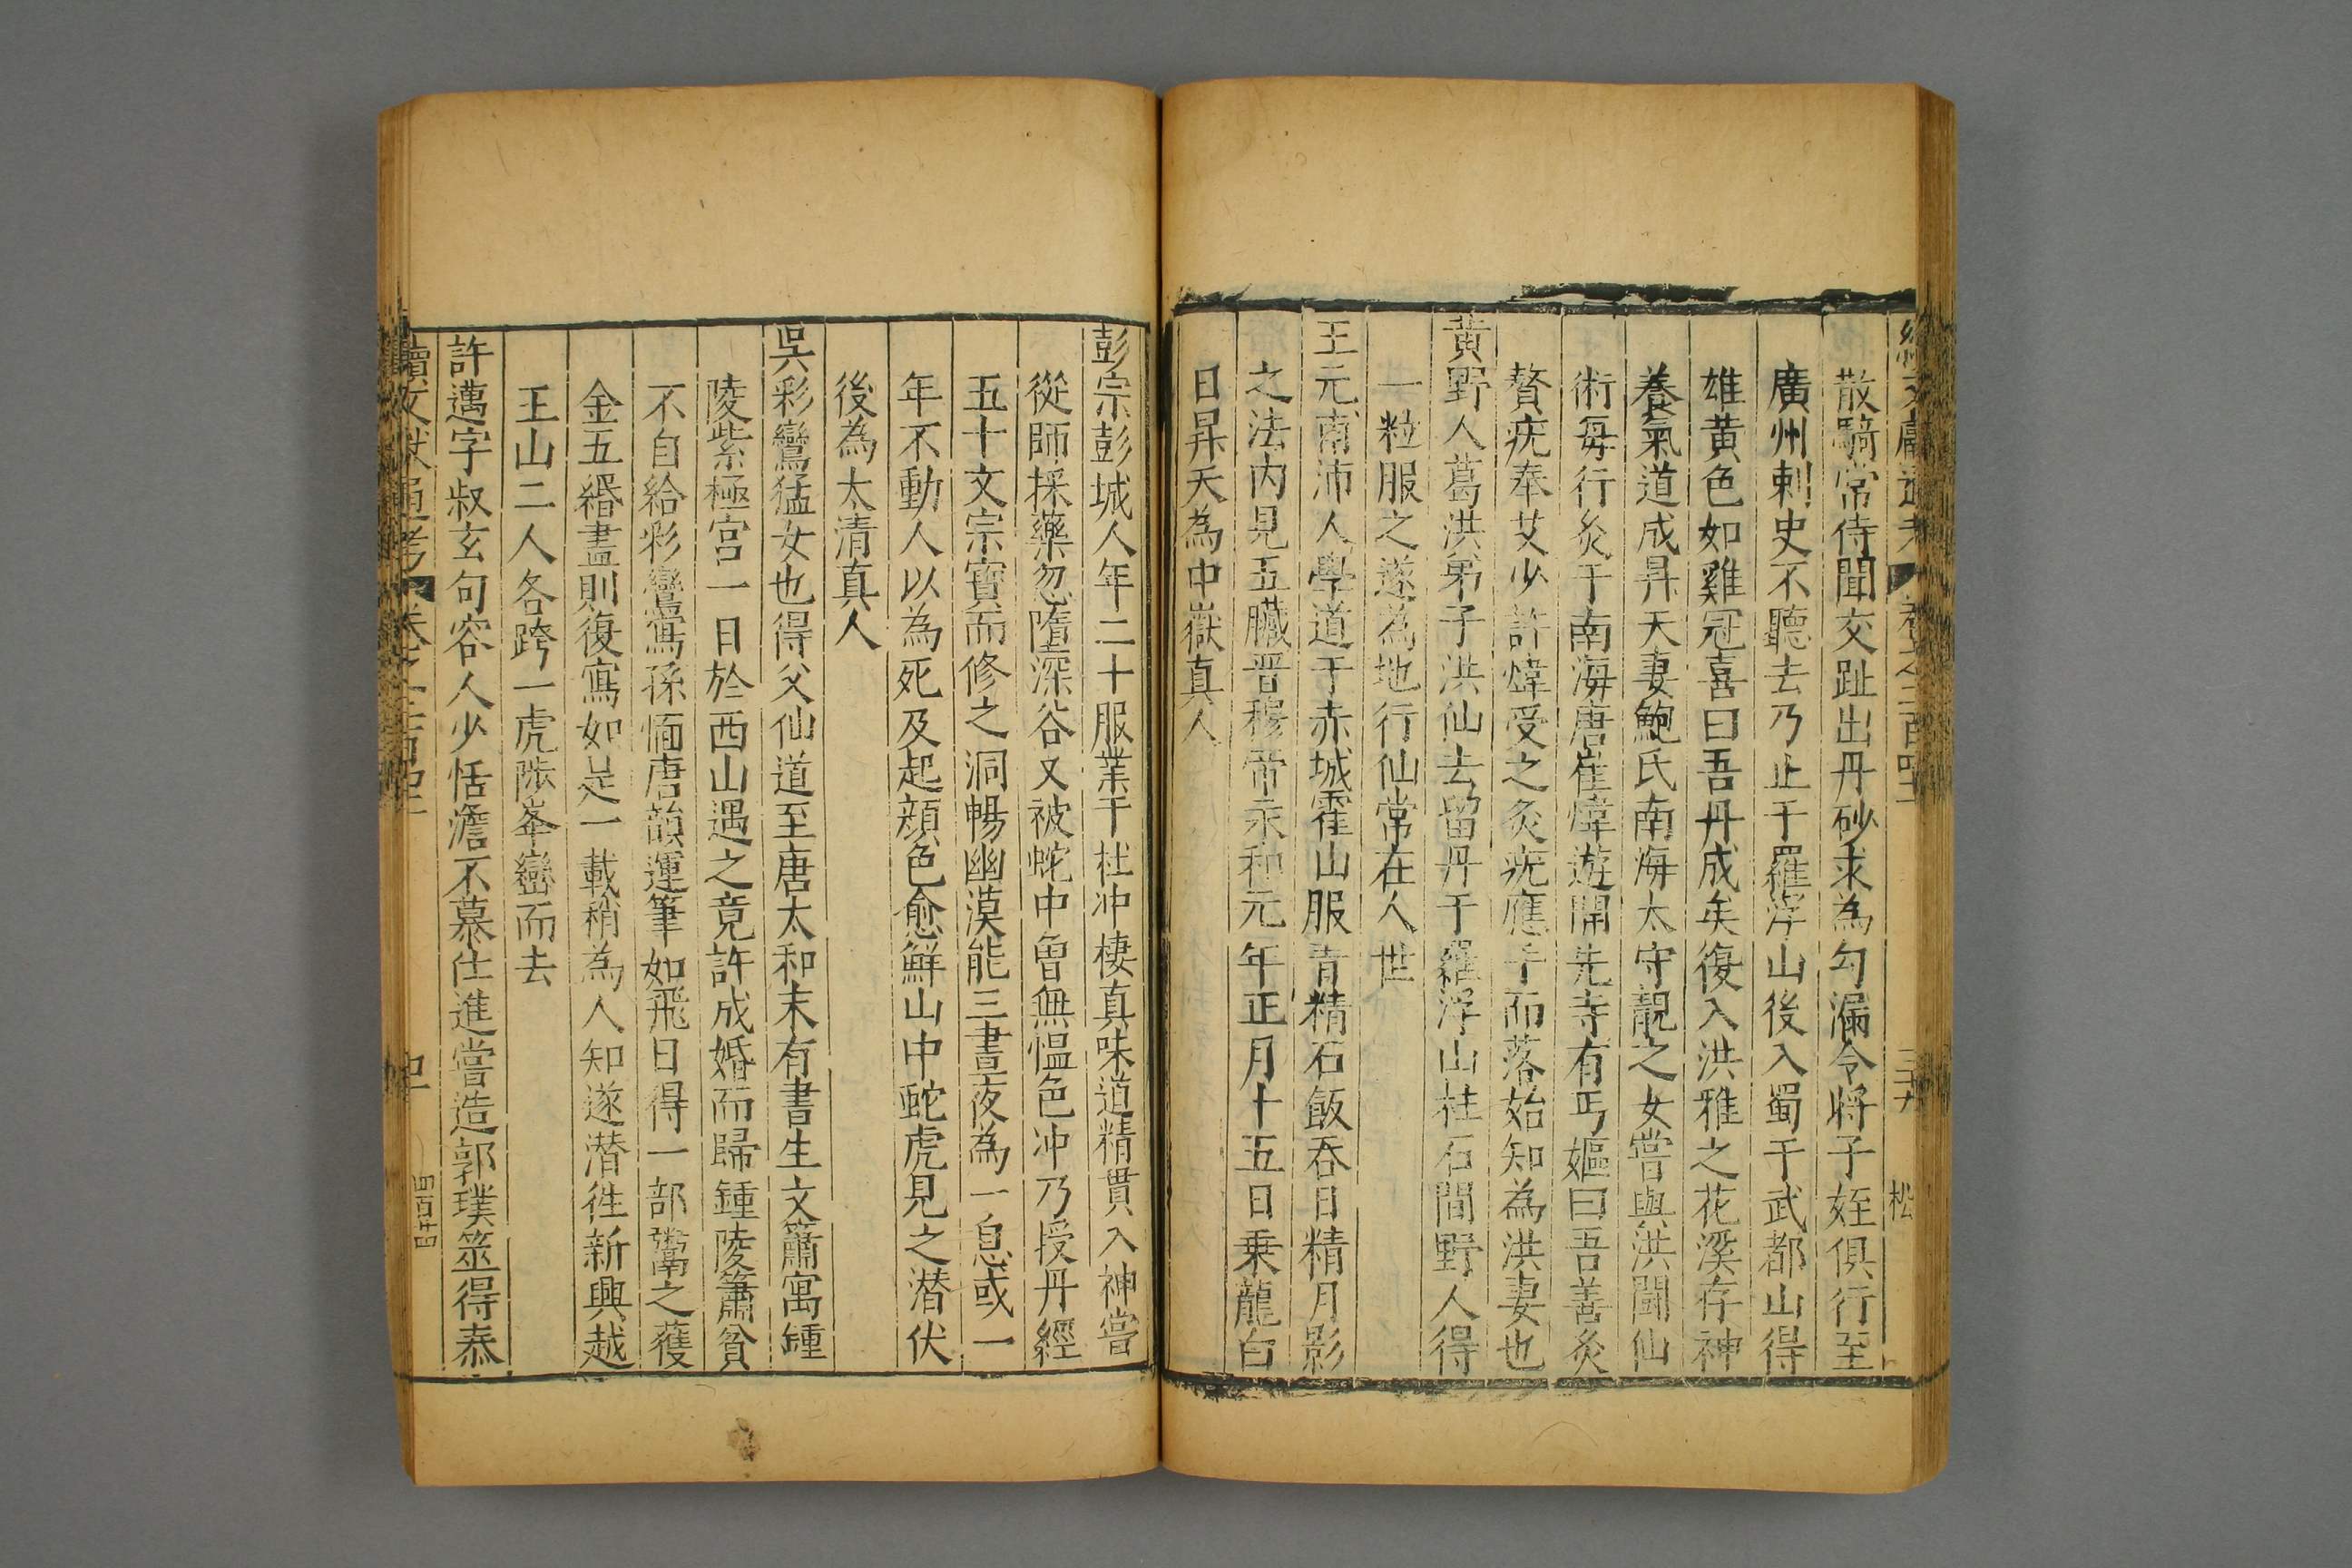 散騎常侍聞交趾出丹砂求為勾漏令將子姪俱行至
廣州刺史不聽去乃止于羅浮山後入蜀于武都山得
雄黃色如雞冠喜曰吾丹成矣復入洪雅之花溪存神
養氣道成昇天妻鮑氏南海太守靚之女嘗與洪聞仙
術每行灸于南海唐崔煒遊開先寺有丐嫗曰吾善灸
贅疣奉艾少許煒受之灸疣應手而落始知為洪妻也
黃野人葛洪弟子洪仙去留丹于羅浮山柱石間野人得
一粒服之遂為地行仙常在人世
王元甫沛人學道于赤城霍山服青精石飯吞日精月影
之法內見五臟晉穆帝永和元年正月十五日乘龍白
日昇天為中嶽真人
彭宗彭城人年二十服業于杜冲棲真味道精貫入神嘗
從師採藥忽墮深谷又被蛇中曾無愠色冲乃授丹經
五十文宗寳而修之洞暢幽漠能三晝夜為一息或一
年不動人以為死及起顔色愈鮮山中蛇虎見之潜伏
後為太清真人
吳彩鸞猛女也得父仙道至唐太和末有書生文簫寓鍾
陵紫極宫一日於西山遇之竟許成婚而歸鍾陵簫貧
不自給彩鸞寫孫愐唐韻運筆如飛日得一部鬻之獲
金五緡盡則復寫如是一載稍為人知遂潜徃新興越
王山二人各跨一虎陟峯巒而去
許邁字叔玄句容人少恬澹不慕仕進嘗造郭璞筮得泰
續文獻通考
四百廿四